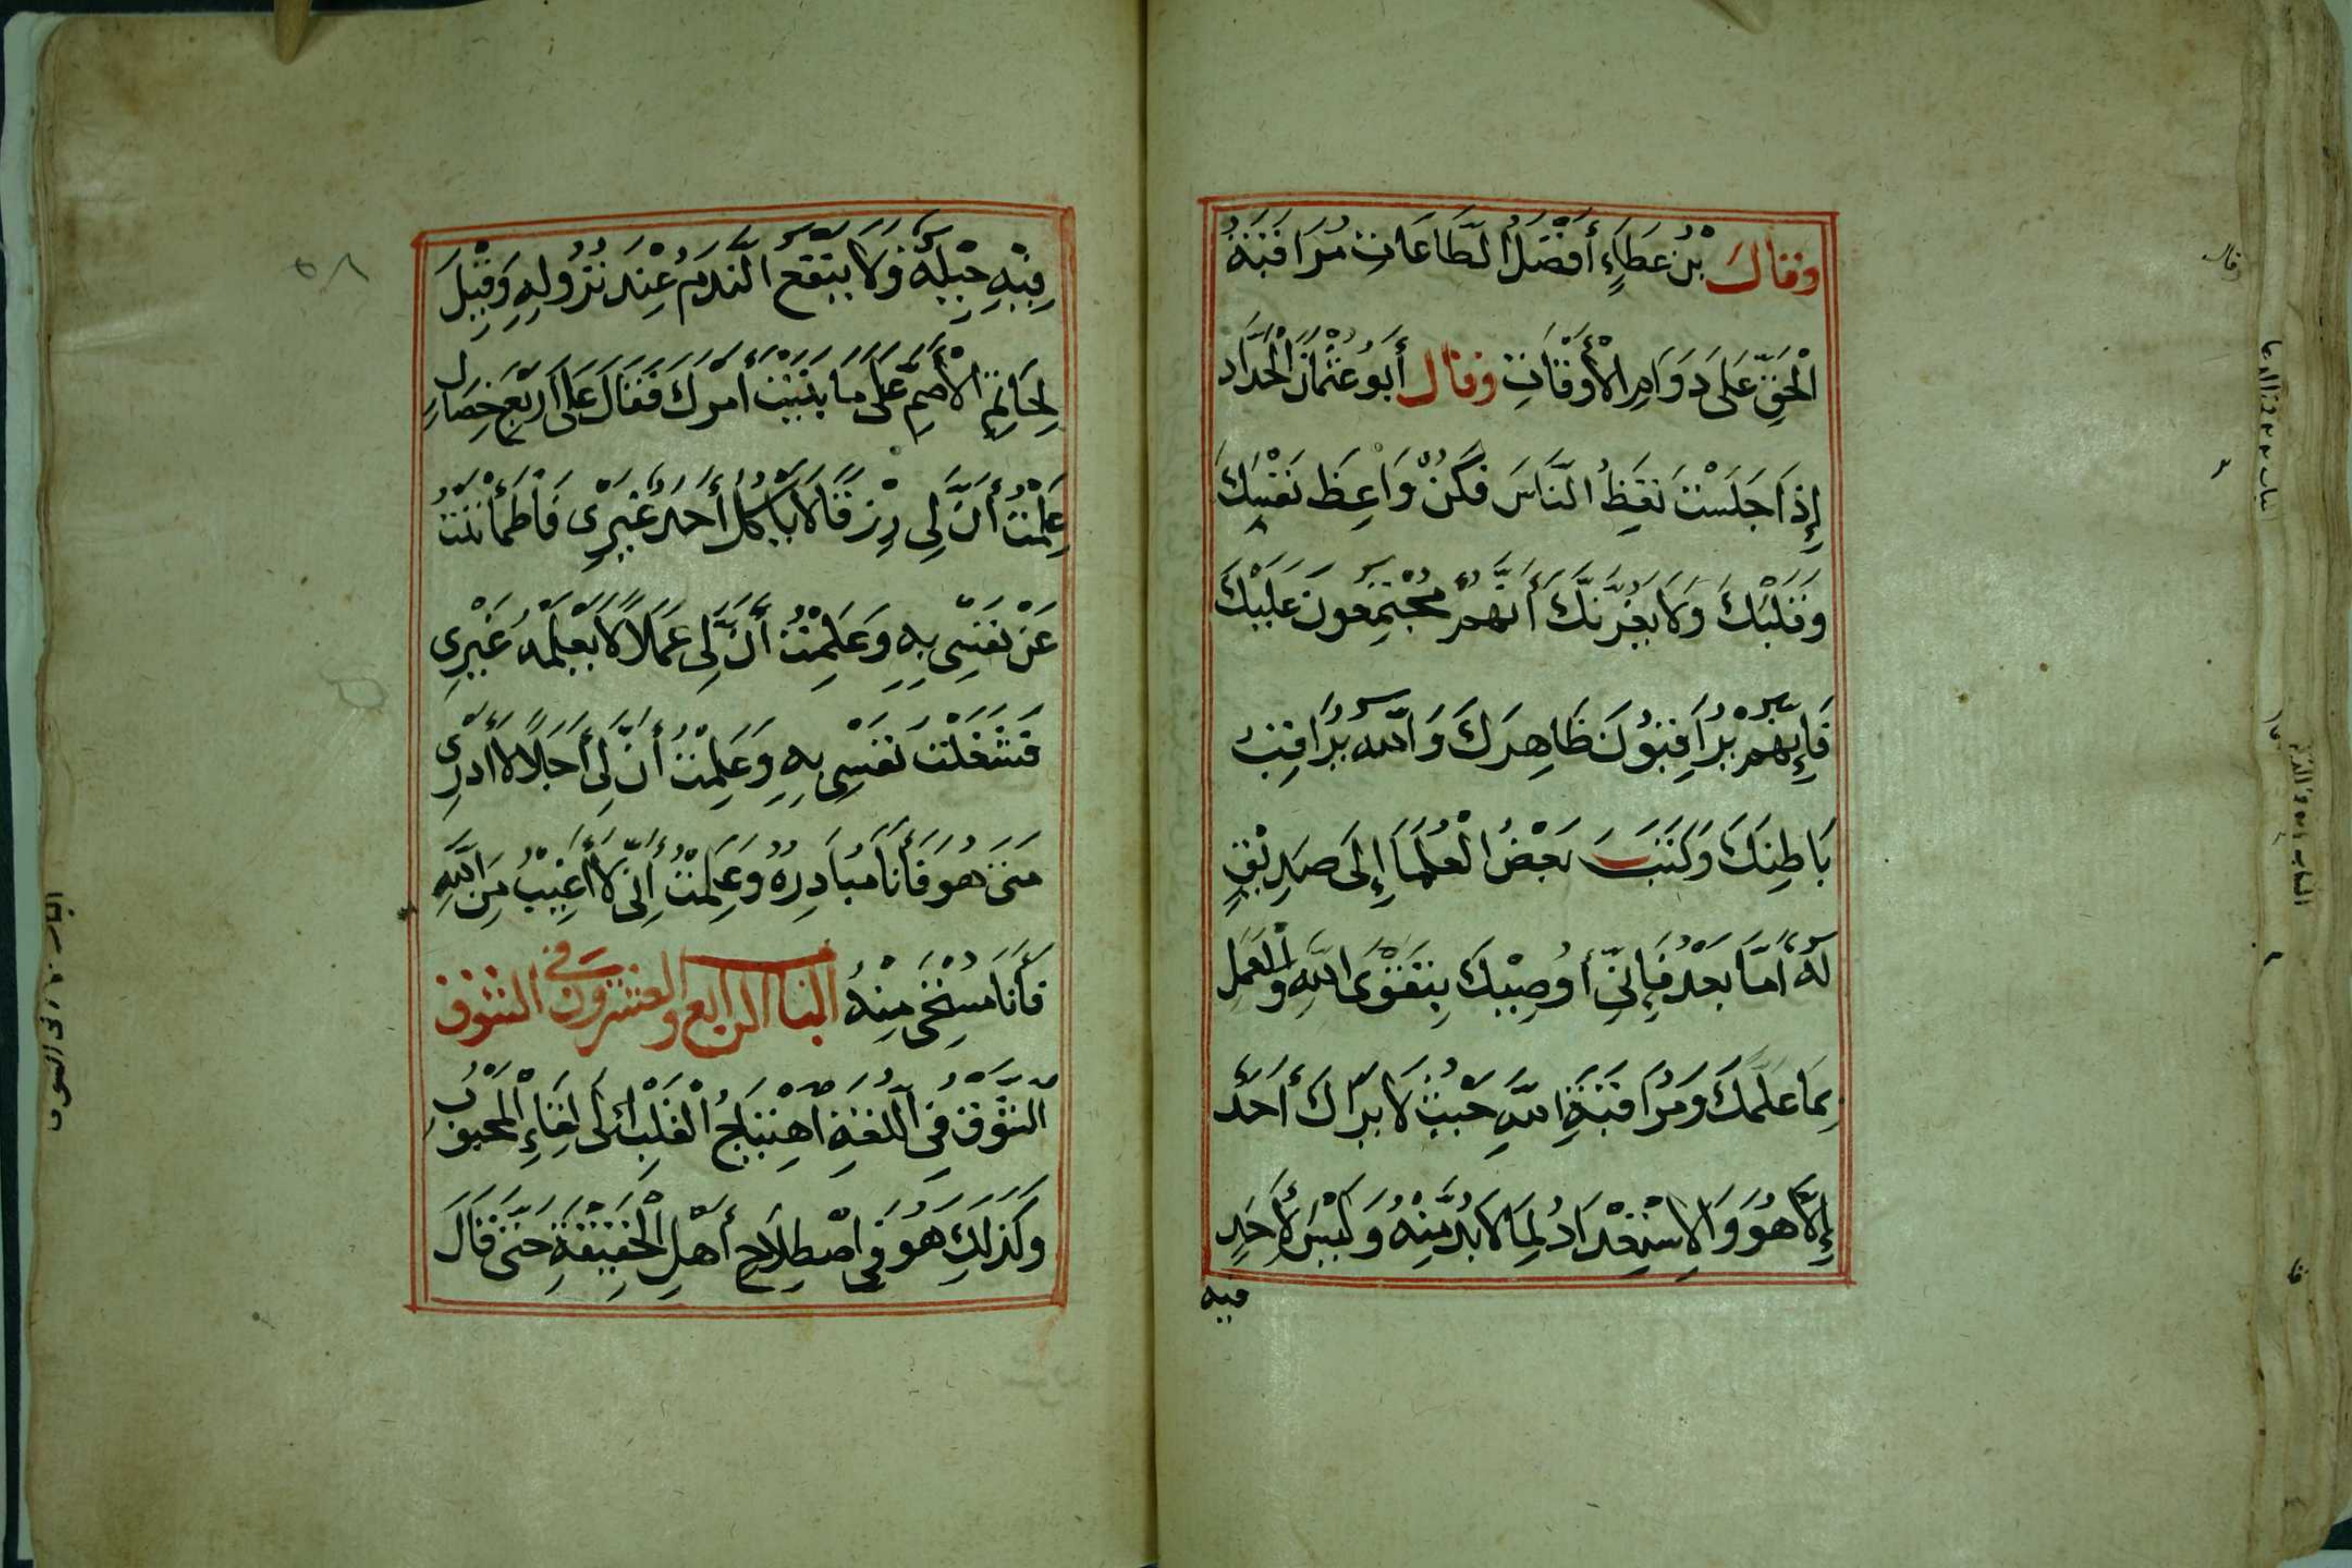 وقالَ بْنُ عَطَاءٍ أَفْضَلُ الطَّاعَاتِ مُرَاقَبَةُ
الْحَقِّ عَلَى دَوَامِ الْأَوْقَاتِ وقال أَبُو عُثْمَانَ الْحَدَّاد
إِذَا جَلَسْتَ تَعِظُ النَّاسَ فَكُنْ وَاعِظَ نَفْسِكَ
وَقَلْبِكَ وَلَا يَغُرَّنَّكَ أَنَّهُمْ مُجْتَمِعُونَ عَلَيْكَ
فَإِنَّهُمْ يُرَاقِبُونَ ظَاهِرَكَ وَاللَّهُ يُرَاقِبُ
بَاطِنَكَ وَكَتَبَ بَعْضُ الْعُلَمَا إِلَى صَدِيقٍ
لَهُ أَمَّا بَعْدُ فَإِنِّي أُوصِيكَ بِتَقْوَى اللَّهِ وَالْعَمَلِ
بِمَا عَلَّمَكَ وَمُرَاقَبَةِ اللَّهِ حَيْثُ لَا يَرَاكَ أَحَدٌ
إِلَّا هُوَ وَالِاسْتِعْدَادُ لِمَا لَا بُدَّ مِنْهُ وَلَيْسَ لِأَحَدٍ
فيه
فِيهِ حِيلَةٌ وَلَا يَنْفَعُ النَّدَمُ عِنْدَ نُزُولِهِ وَقِيلَ
لِحَاتِمِ الْأَصَمِّ عَلَى مَا بَنَيْتَ أَمْرَكَ فَقَالَ عَلَى أَرْبَعِ خِصَالٍ
عَلِمْتُ أَنَّ لِي رِزْقًا لَا يَأْكُلُ أَحَدٌ غَيْرِي فَاطْمَأْنَنْتُ
عَنْ نَفْسِي بِهِ وَعَلِمْتُ أَنَّ لِي عَمَلًا لَا يَعْلَمُهُ غَيْرِي
فَشَغَلْتُ نَفْسِي بِهِ وَعَلِمْتُ أَنَّ لِي أَجَلًا لَا أَدْرِي
مَتَى هُوَ فَأَنَا مُبَادِرُهُ وَعَلِمْتُ أَنِّي لَا أَغِيبُ مِنَ اللَّهِ
فَأَنَا مُسْتَحِي مِنْهُ الباب الرابع والعشرون في الشوق
الشَّوْقُ فِي اللُّغَةِ اهْتِيَاجُ الْقَلْبِ إِلَى لِقَاءِ الْمَحْبُوبِ
وَكَذَلِكَ هُوَ فِي اصْطِلَاحِ أَهْلِ الْحَقِيقَةِ حَتَّى قَالَ